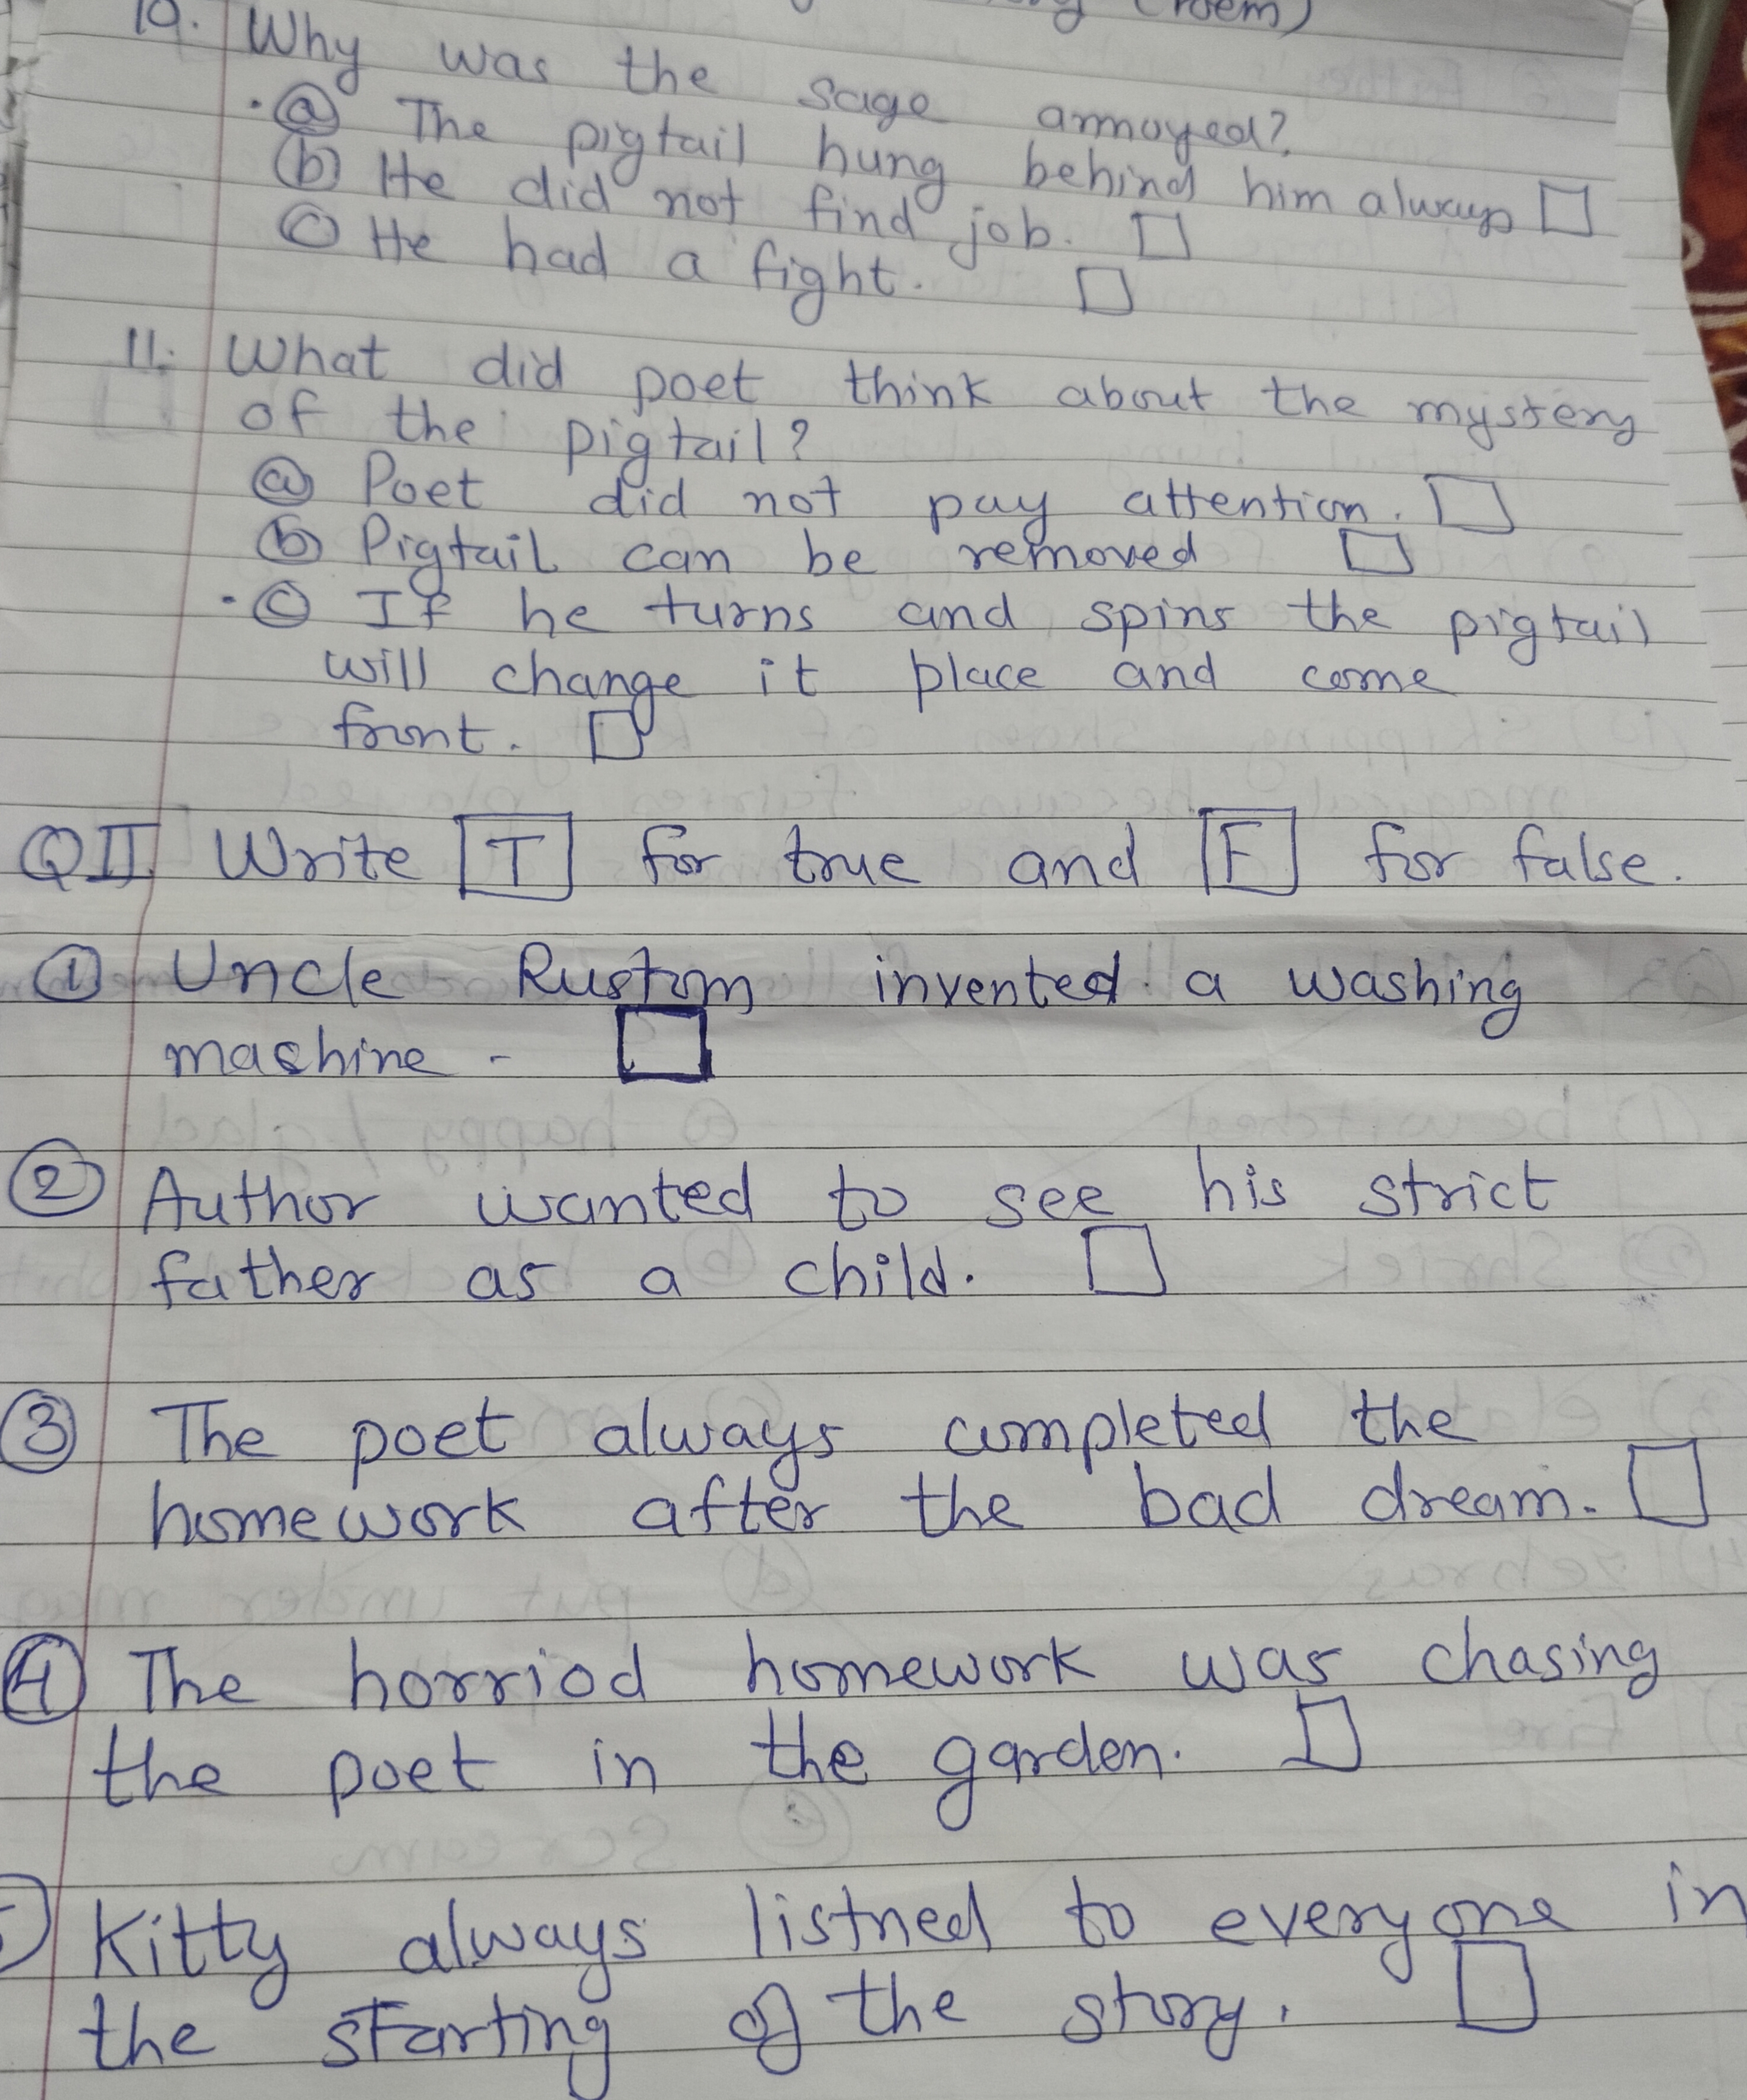 (Poem)
10. Why was the sage annoyed?
ⓐ The pigtail hung behind him always
ⓑ He did not find job.
ⓒ He had a fight.
11. What did poet think about the mystery
of the pigtail?
ⓐ Poet did not pay attention.
ⓑ Pigtail can be removed
ⓒ If he turns and spins the pigtail
will change it place and come
front.
QII. Write T for true and F for false.
① Uncle Rustom invented a washing
machine -
② Author wanted to see his strict
father as a child.
③ The poet always completed the
homework after the bad dream.
④ The horriod homework was chasing
the poet in the garden.
Kitty always listned to everyone in
the starting of the story.